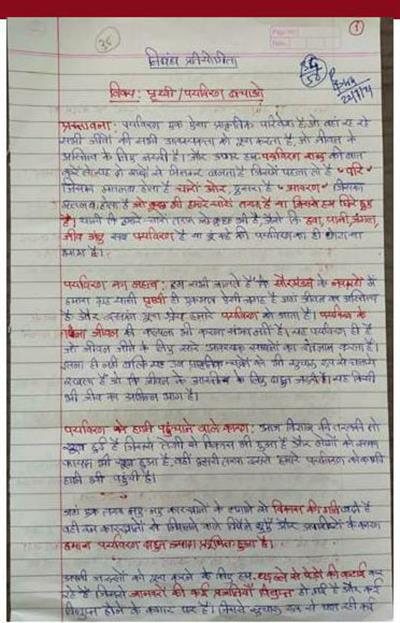 36
1
निबंध प्रतियोगिता
34
50
विषय: पृथ्वी/पर्यावरण बचाओ
प्रस्तावना: पर्यावरण एक ऐसा प्राकृतिक परिवेश है, जो यहां रह रहे
सभी जीवों की सभी आवश्यकता को पूरा करता है, जो जीवन के
अस्तित्व के लिए जरूरी है। और अगर हम पर्यावरण शब्द की बात
करें तो यह दो शब्दों से मिलकर बनता है जिसमें पहला तो है "परि"
जिसका मतलब होता है चारों ओर, दूसरा है "आवरण" जिसका
मतलब होता है जो कुछ भी हमारे चारों तरफ है या जिससे हम घिरे हुए
है। यानी कि हमारे चारों तरफ जो कुछ भी है, जैसे कि हवा, पानी,
जीव जंतु सब पर्यावरण है या यूं कहें की पर्यावरण का ही
पर्यावरण का महत्व: हम सभी जानते हैं कि सौरमंडल के नवग्रहों में
हमारा ग्रह यानी पृथ्वी ही एकमात्र ऐसी जगह है जहां जीवन का अस्तित्व
है और इसका पूरा श्रेय हमारे पर्यावरण को जाता है। पर्यावरण के
बिना जीवन की कल्पना भी करना संभव नहीं है। यह पर्यावरण ही है
जो जीवन जीने के लिए सारे आवश्यक साधनों का इंतजाम करता है।
इतना ही नहीं बल्कि यह उन प्राकृतिक चक्रों को भी सुचारू रूप से चलाये
रखता है जो कि जीवन के अस्तित्व के लिए बहुत जरूरी है। यह किसी
भी जीव का अभिन्न अंग है।
पर्यावरण को हानि पहुंचाने वाले कारण: आज विज्ञान की तरक्की तो
खूब हुई है जिससे तेजी से विकास भी हुआ है और लोगों को इसका
फायदा भी खूब हुआ है, वहीं दूसरी तरफ इससे हमारे पर्यावरण को काफी
हानि भी पहुंची है।
जहां एक तरफ नए-नए कारखानों के लगाने से विकास की गति बढ़ी है
वहीं इन कारखानों से निकलने वाले विषैले धुएं और अपशिष्टों के कारण
हमारा पर्यावरण बहुत ज्यादा प्रदूषित हुआ है।
अपनी जरूरतों को पूरा करने के लिए हम धड़ल्ले से पेड़ों की कटाई कर
रहे हैं जिससे जानवरों की कई प्रजातियाँ विलुप्त हो गई है और कई
विलुप्त होने के कगार पर हैं। जिससे सुचारू रूप से चल रही कई